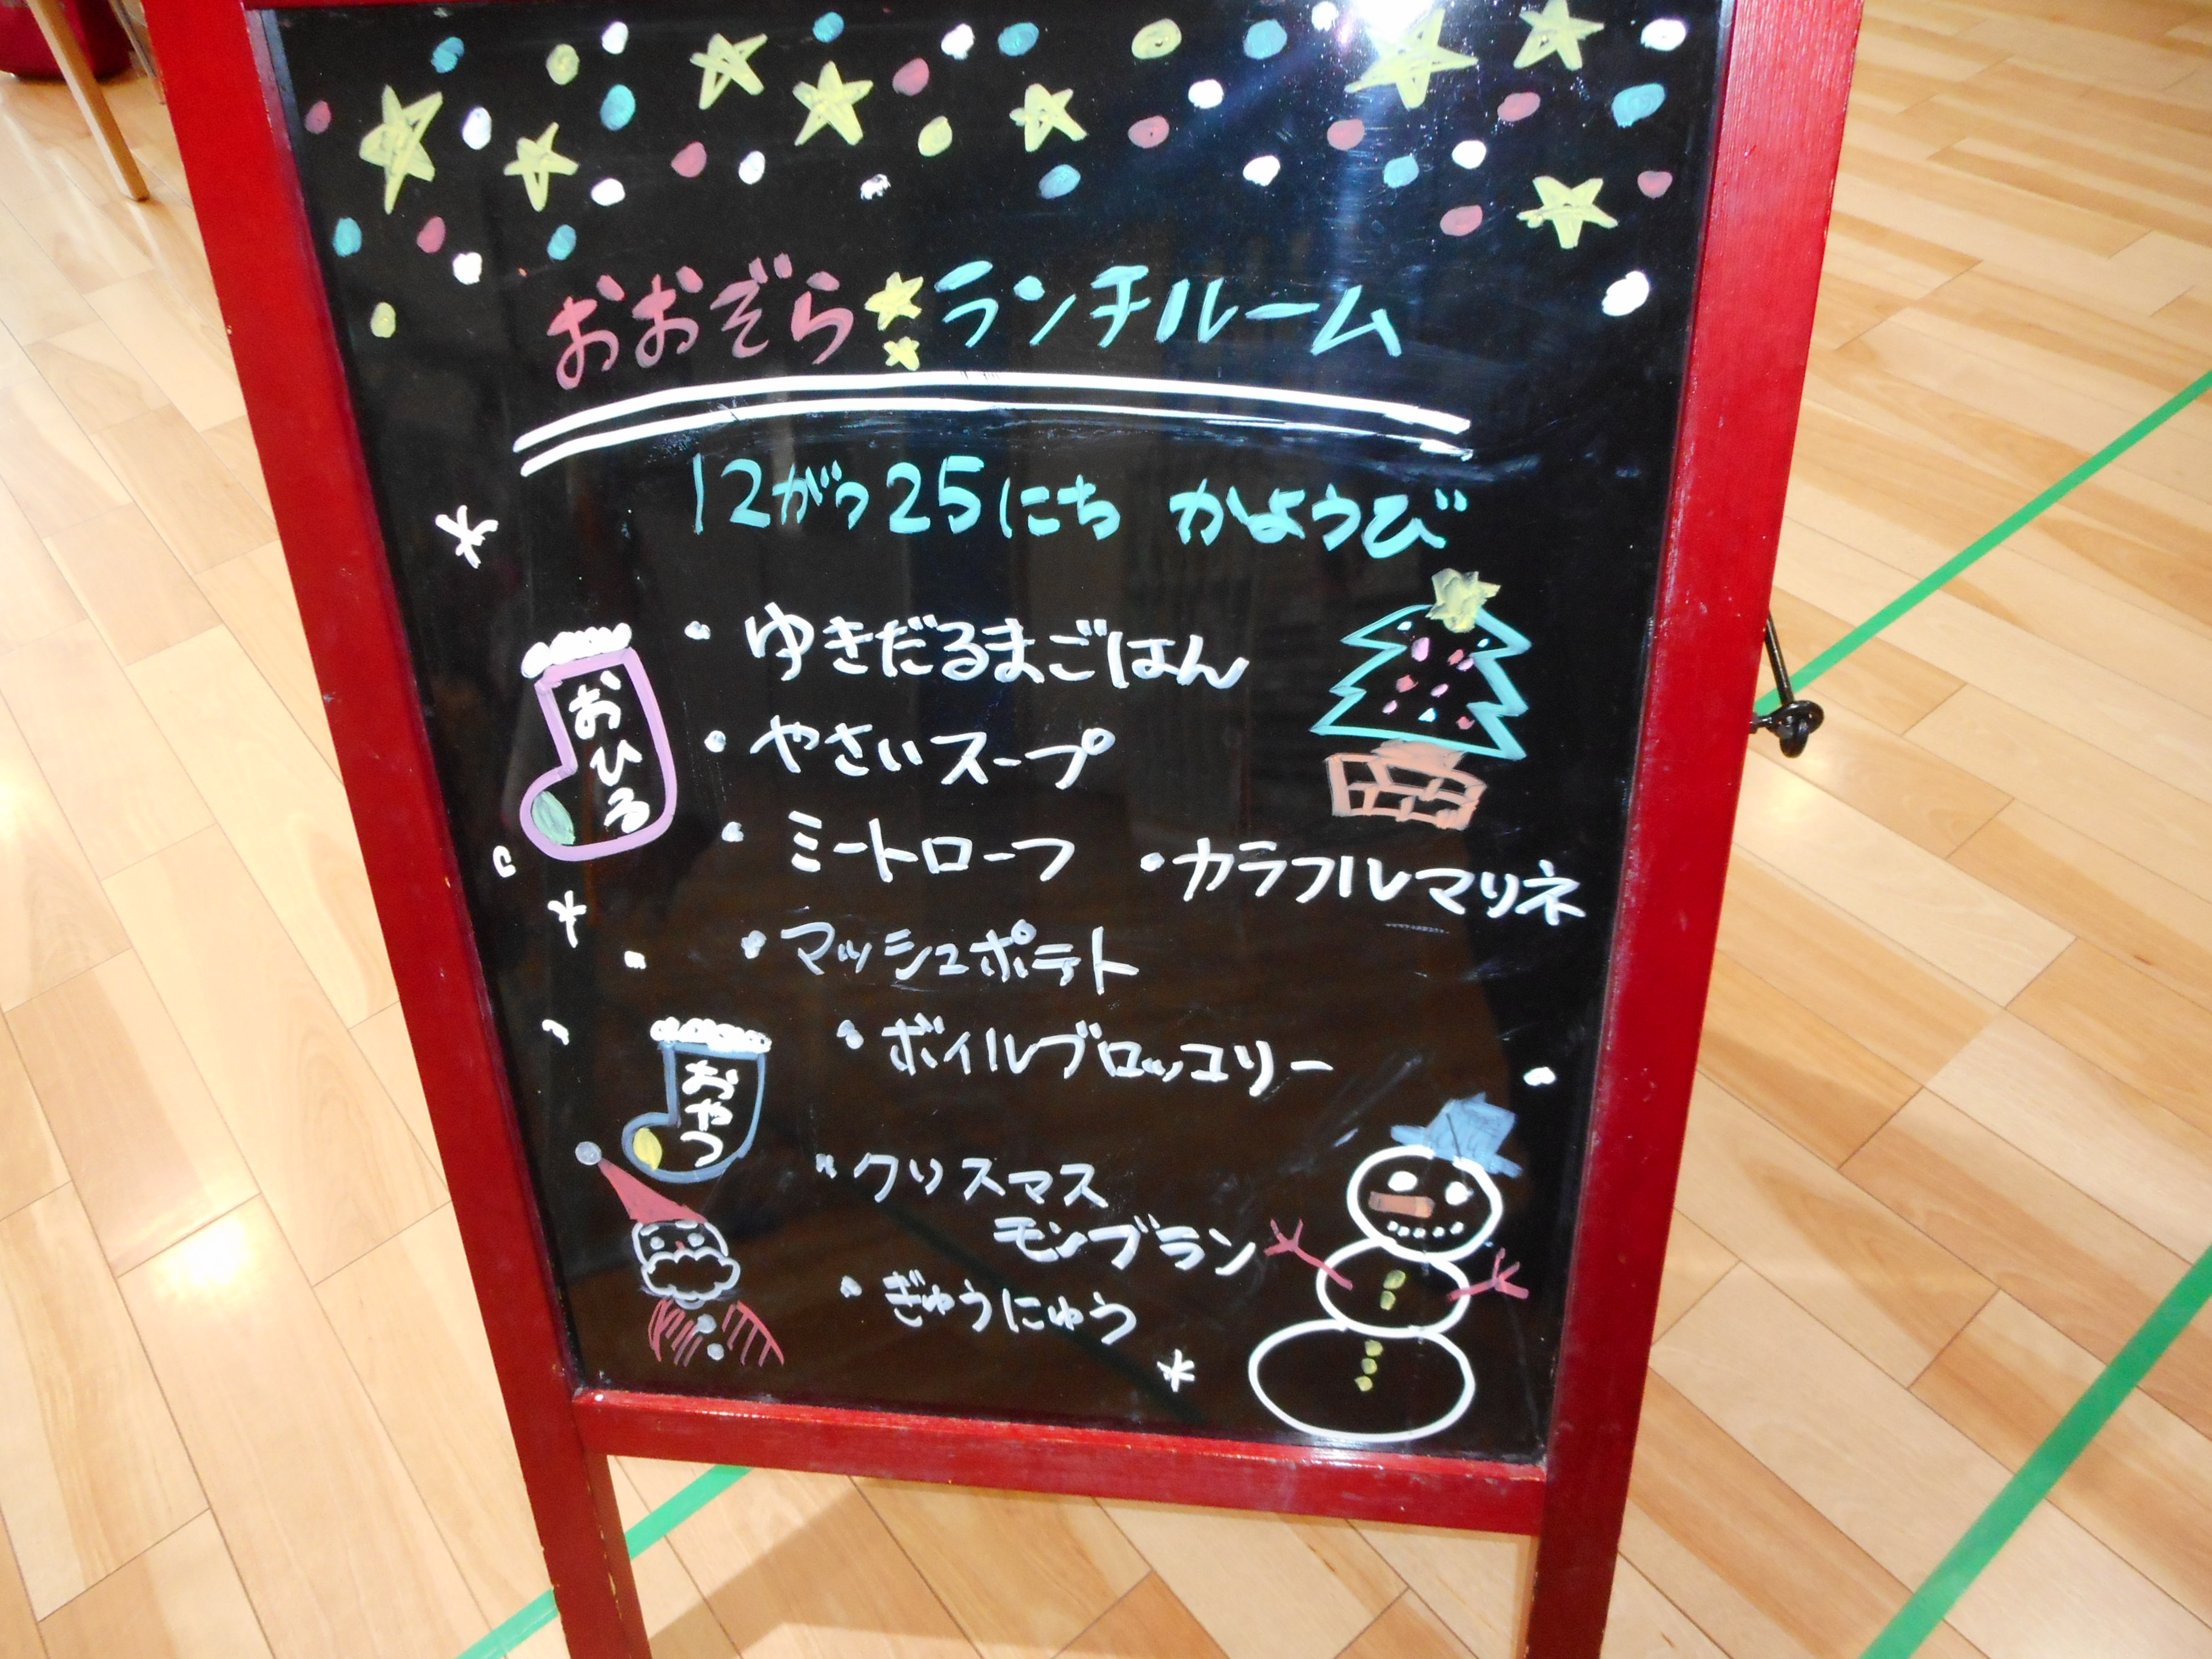 おおぞら ランチルーム
12がつ25にち かようび
おひる
・ゆきだるまごはん
・やさいスープ
・ミートローフ ・カラフルマリネ
・マッシュポテト
・ボイルブロッコリー
おやつ
・クリスマス
モンブラン
・ぎゅうにゅう